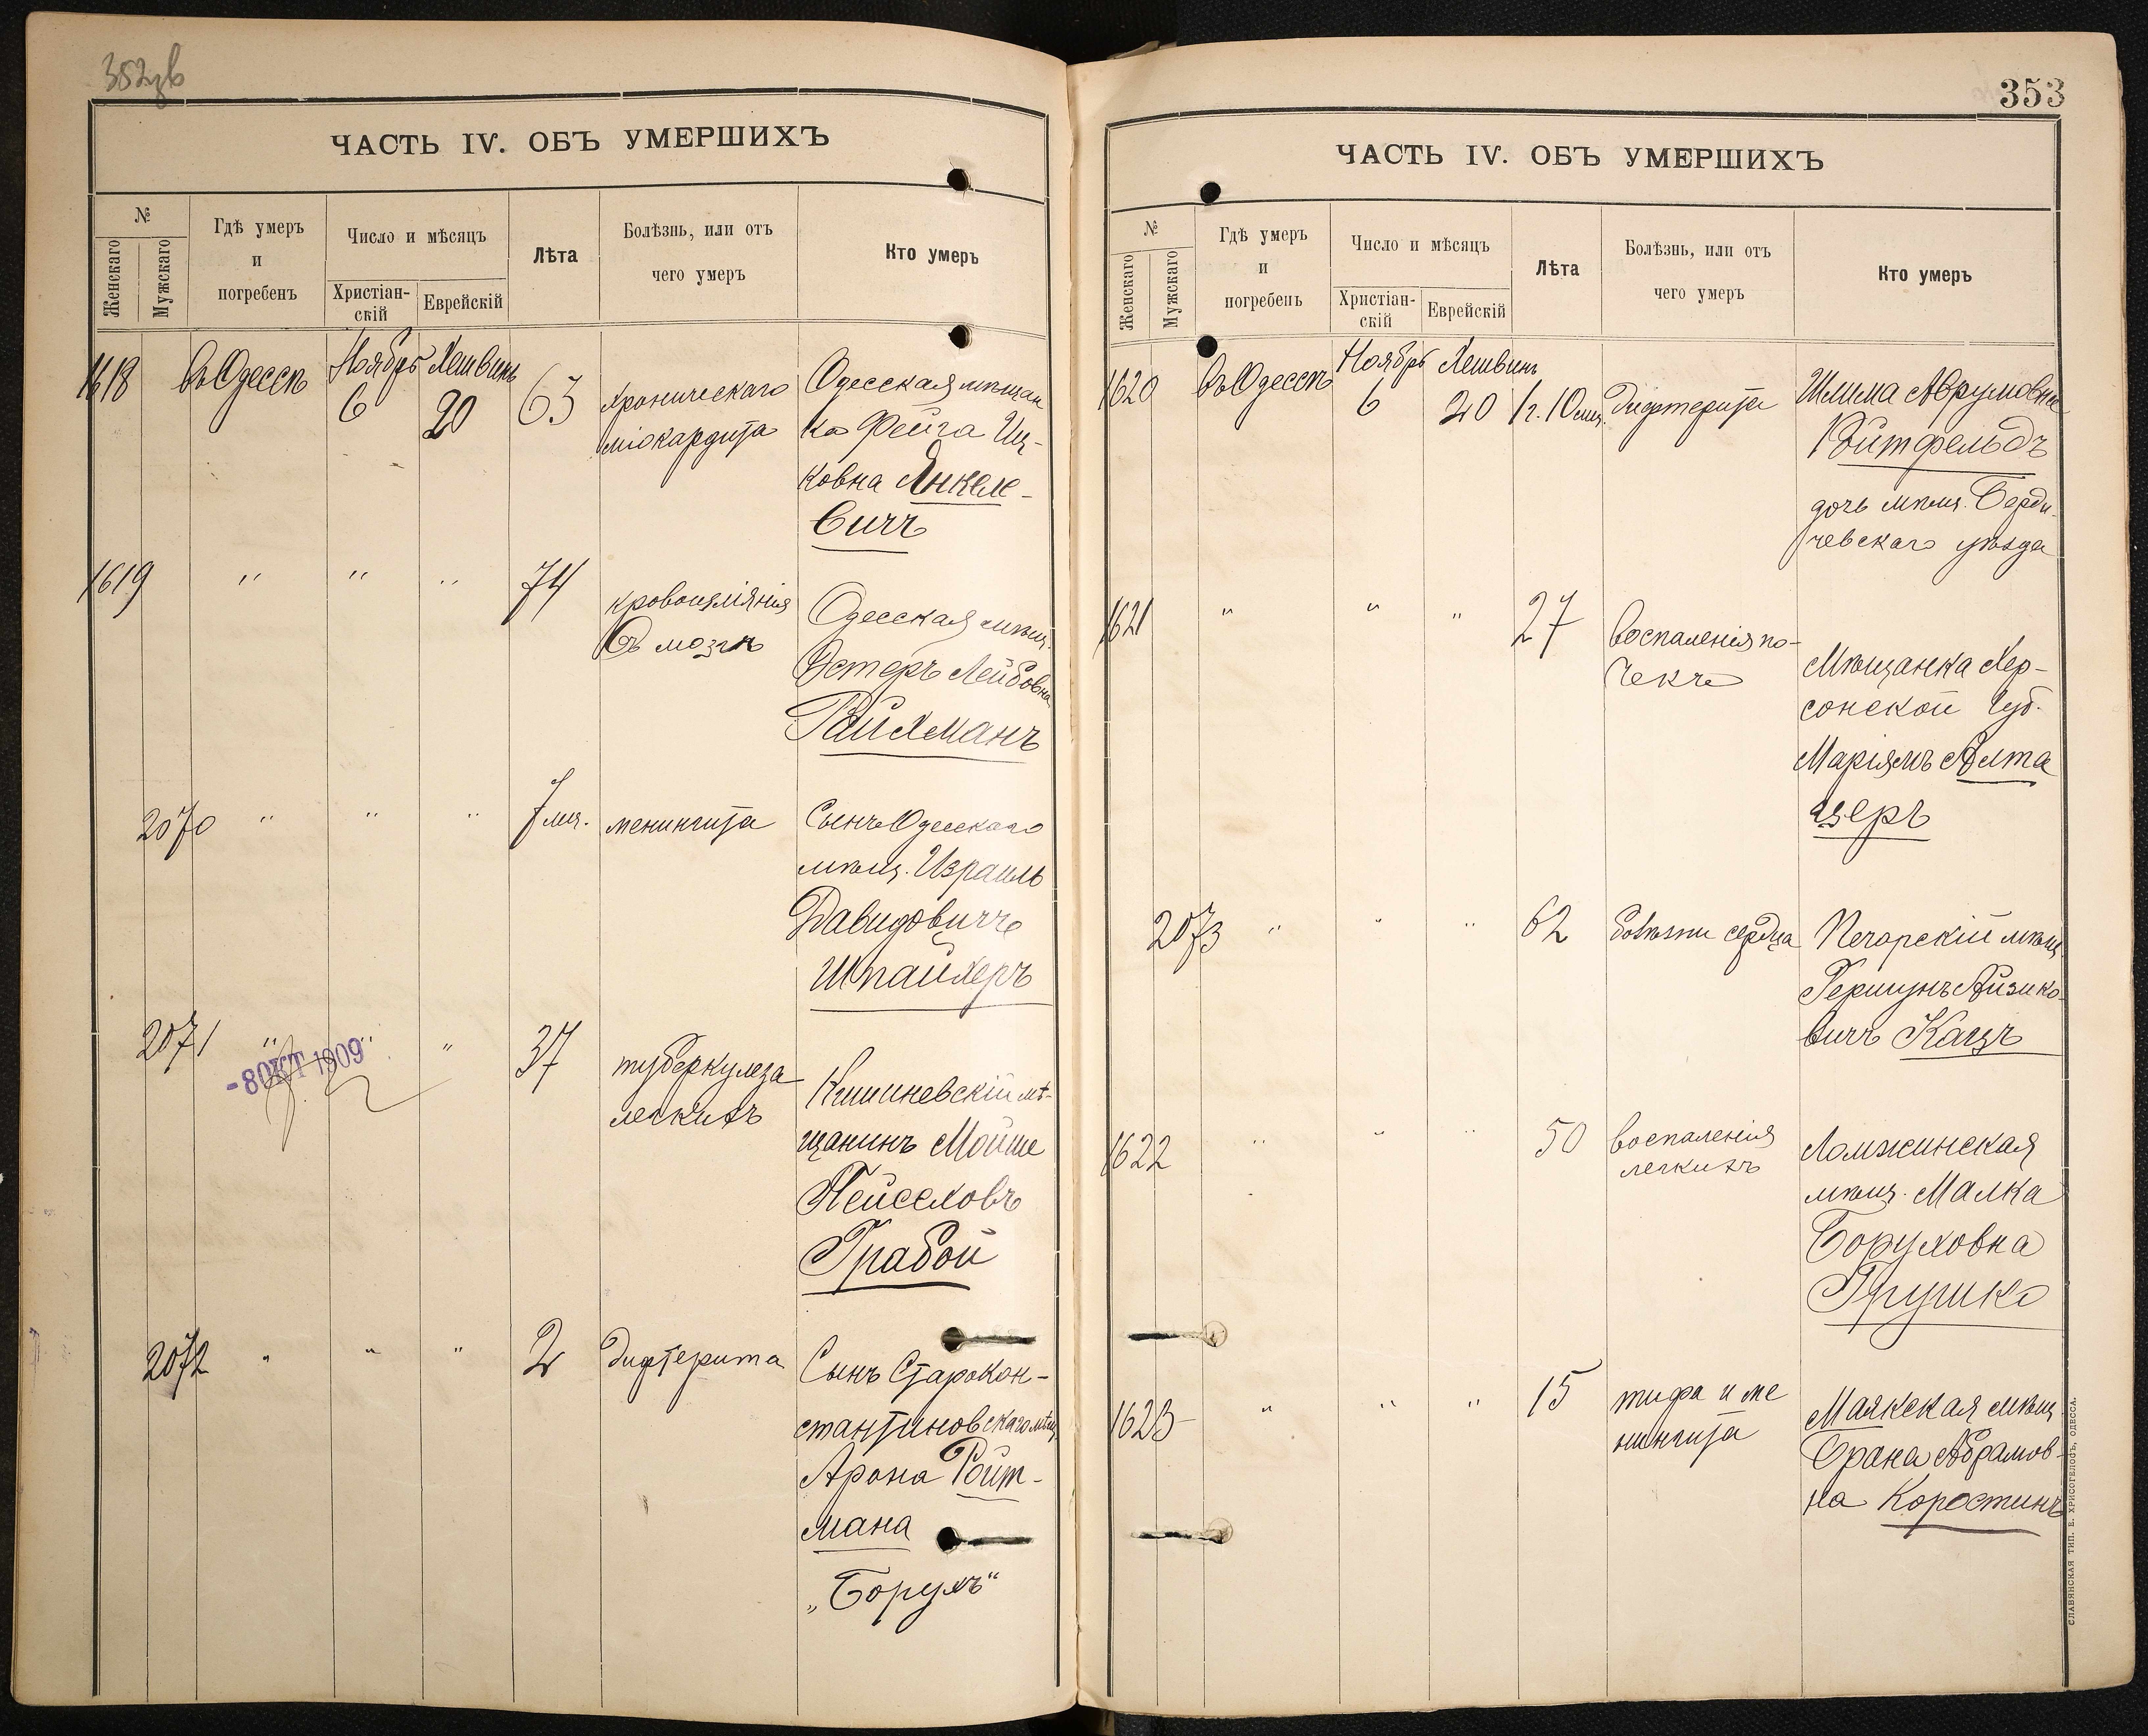 ЧАСТЬ IV. ОБЪ УМЕРШИХЪ
№
Женскаго
Мужскаго
Гдѣ умеръ
и
погребенъ
Число и мѣсяцъ
Христіан-
скій
Еврейскій
Лѣта
Болѣзнь, или отъ
чего умеръ
Кто умеръ
1618 Въ Одессѣ Ноябрь 6 Хешвинъ 20 63
хроническаго
міокардита
Одесская мѣщан
ка Фейга Иц-
ковна Янкеле-
вичъ
1619 " " " 74
кровоизліянія
въ мозгъ
Одесская мѣщ.
Эстеръ Лейбовна
Райхманъ
2070 " " " 7 мц. менингита
Сынъ Одесскаго
мѣщ. Израиль
Давидовичъ
Шпайхеръ
2071 " " " 37
-8 ОКТ 1909
туберкулеза
легкихъ
Кишиневскій мѣ-
щанинъ Мойше
Пейсеховъ
Грабой
2072 " " " 2 дифтерита
Сынъ Старокон-
стантиновскаго мѣщ.
Арона Ройт-
мана
„Борухъ“
353
ЧАСТЬ IV. ОБЪ УМЕРШИХЪ
№
Женскаго
Мужскаго
Гдѣ умеръ
и
погребенъ
Число и мѣсяцъ
Христіан-
скій
Еврейскій
Лѣта
Болѣзнь, или отъ
чего умеръ
Кто умеръ
1620 Въ Одессѣ Ноябрь 6 Хешвинъ 20 1 г. 10 мц. дифтерита
Шлима Аврумовна
Ройтфельдъ
дочь мѣщ. Берди-
чевскаго уѣзда
1621 " " " 27
воспаленія по-
чекъ
Мѣщанка Хер-
сонской Губ.
Маріямъ Алта
церъ
2073 " " " 62 болѣзни сердца
Печорскій мѣщ.
Гершунъ Айзико-
вичъ Кацъ
1622 " " " 50
воспаленія
легкихъ
Ломжинская
мѣщ. Малка
Боруховна
Грушко
1623 " " " 15
тифа и ме
нингита
Маякская мѣщ.
Брана Абрамов-
на Коростинъ
СЛАВЯНСКАЯ ТИП. Е. ХРИСОГЕЛОСЪ, ОДЕССА.